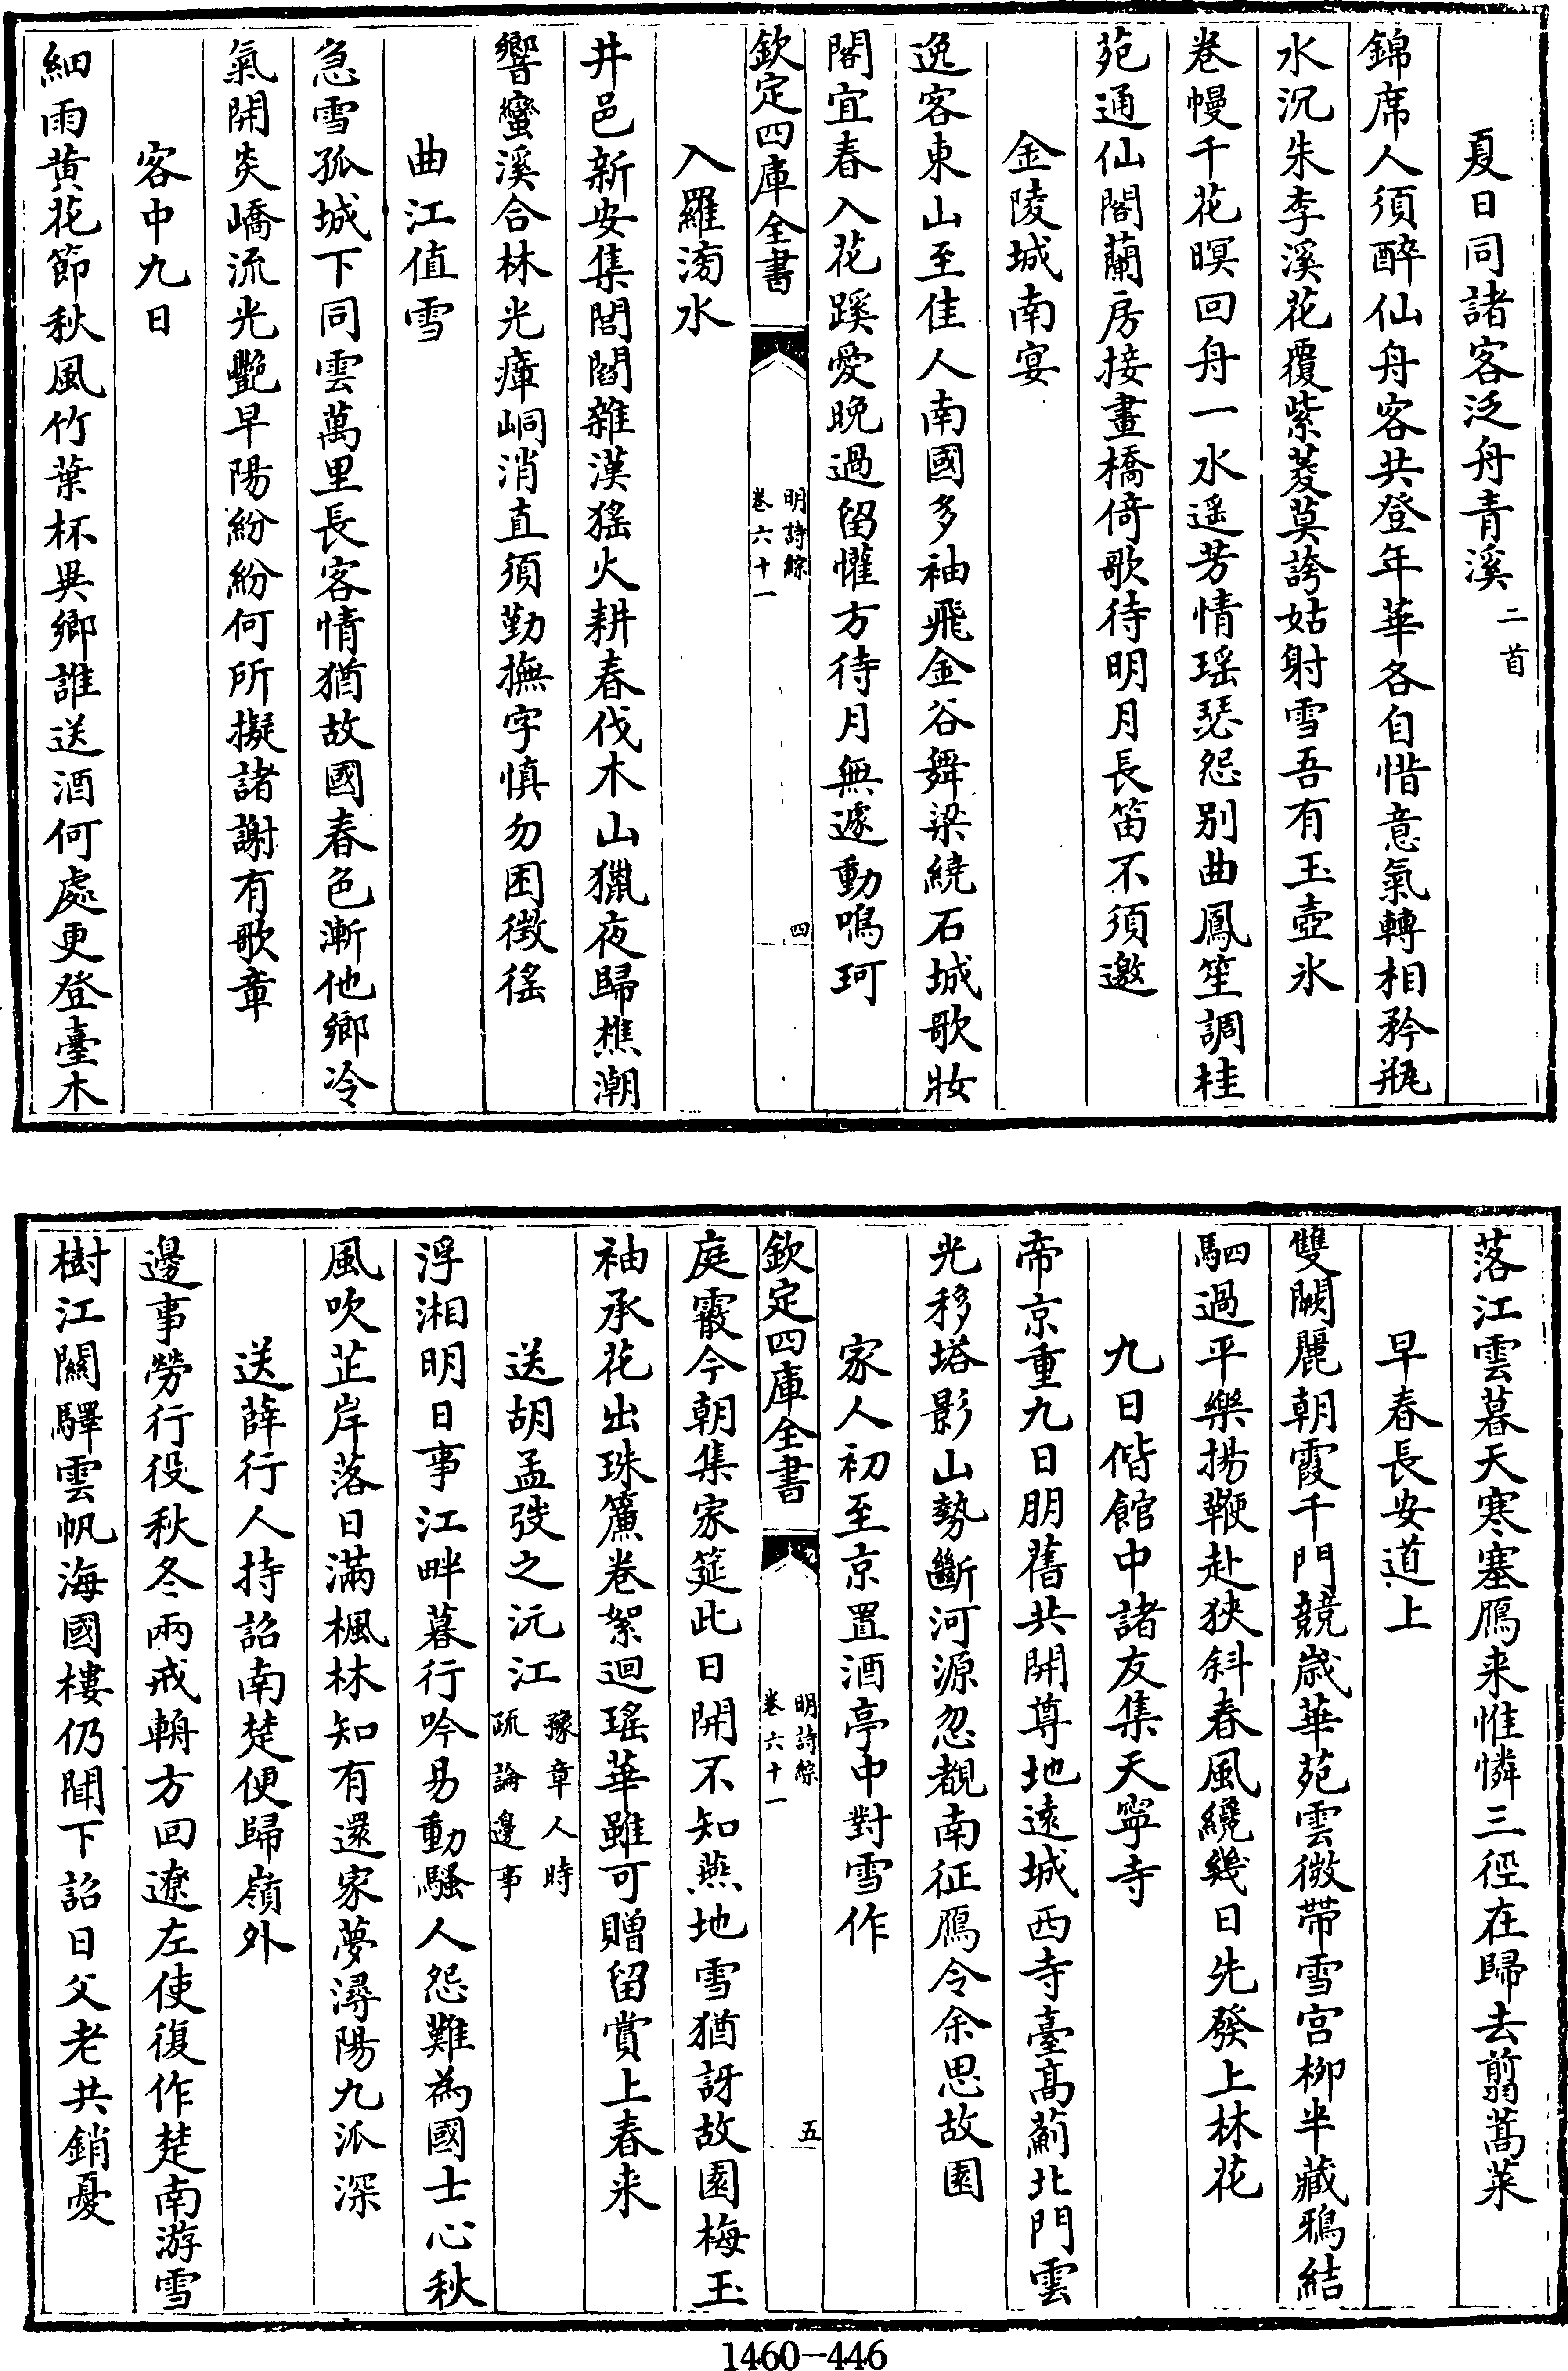 夏日同諸客泛舟青溪二首
錦席人須醉仙舟客共登年華各自惜意氣轉相矜瓶
水沉朱李溪花覆紫菱莫誇姑射雪吾有玉壺氷
卷幔千花暝回舟一水遥芳情瑶瑟怨别曲鳳笙調桂
苑通仙閣蘭房接畫橋倚歌待明月長笛不須邀
金陵城南宴
逸客東山至佳人南國多袖飛金谷舞梁繞石城歌妝
閣宜春入花蹊愛晚過留懽方待月無遽動鳴珂
欽定四庫全書
明詩綜
卷六十一
四
入羅滂水
井邑新安集閭閻雜漢猺火耕春伐木山獵夜歸樵潮
響蠻溪合林光瘴峒消直須勤撫字慎勿困徴徭
曲江值雪
急雪孤城下同雲萬里長客情猶故國春色漸他鄉冷
氣開炎嶠流光艷早陽紛紛何所擬諸謝有歌章
客中九日
細雨黄花節秋風竹葉杯異鄉誰送酒何處更登臺木
落江雲暮天寒塞鴈来惟憐三徑在歸去翦蒿莱
早春長安道上
雙闕麗朝霞千門競歲華苑雲微帶雪宫栁半藏鴉結
駟過平樂揚鞭赴狹斜春風纔幾日先發上林花
九日偕館中諸友集天寧寺
帝京重九日朋舊共開尊地遠城西寺臺髙薊北門雲
光移塔影山勢斷河源忽覩南征鴈令余思故園
家人初至京置酒亭中對雪作
欽定四庫全書
明詩綜
卷六十一
五
庭霰今朝集家筵此日開不知燕地雪猶訝故園梅玉
袖承花出珠簾卷絮迴瑤華雖可贈留賞上春来
送胡孟弢之沅江豫章人時
疏論邊事
浮湘明日事江畔暮行吟易動騷人怨難為國士心秋
風吹芷岸落日滿楓林知有還家夢潯陽九派深
送薛行人持詔南楚便歸嶺外
邊事勞行役秋冬兩戒輈方回遼左使復作楚南游雪
樹江關驛雲帆海國樓仍聞下詔日父老共銷憂
1460-446